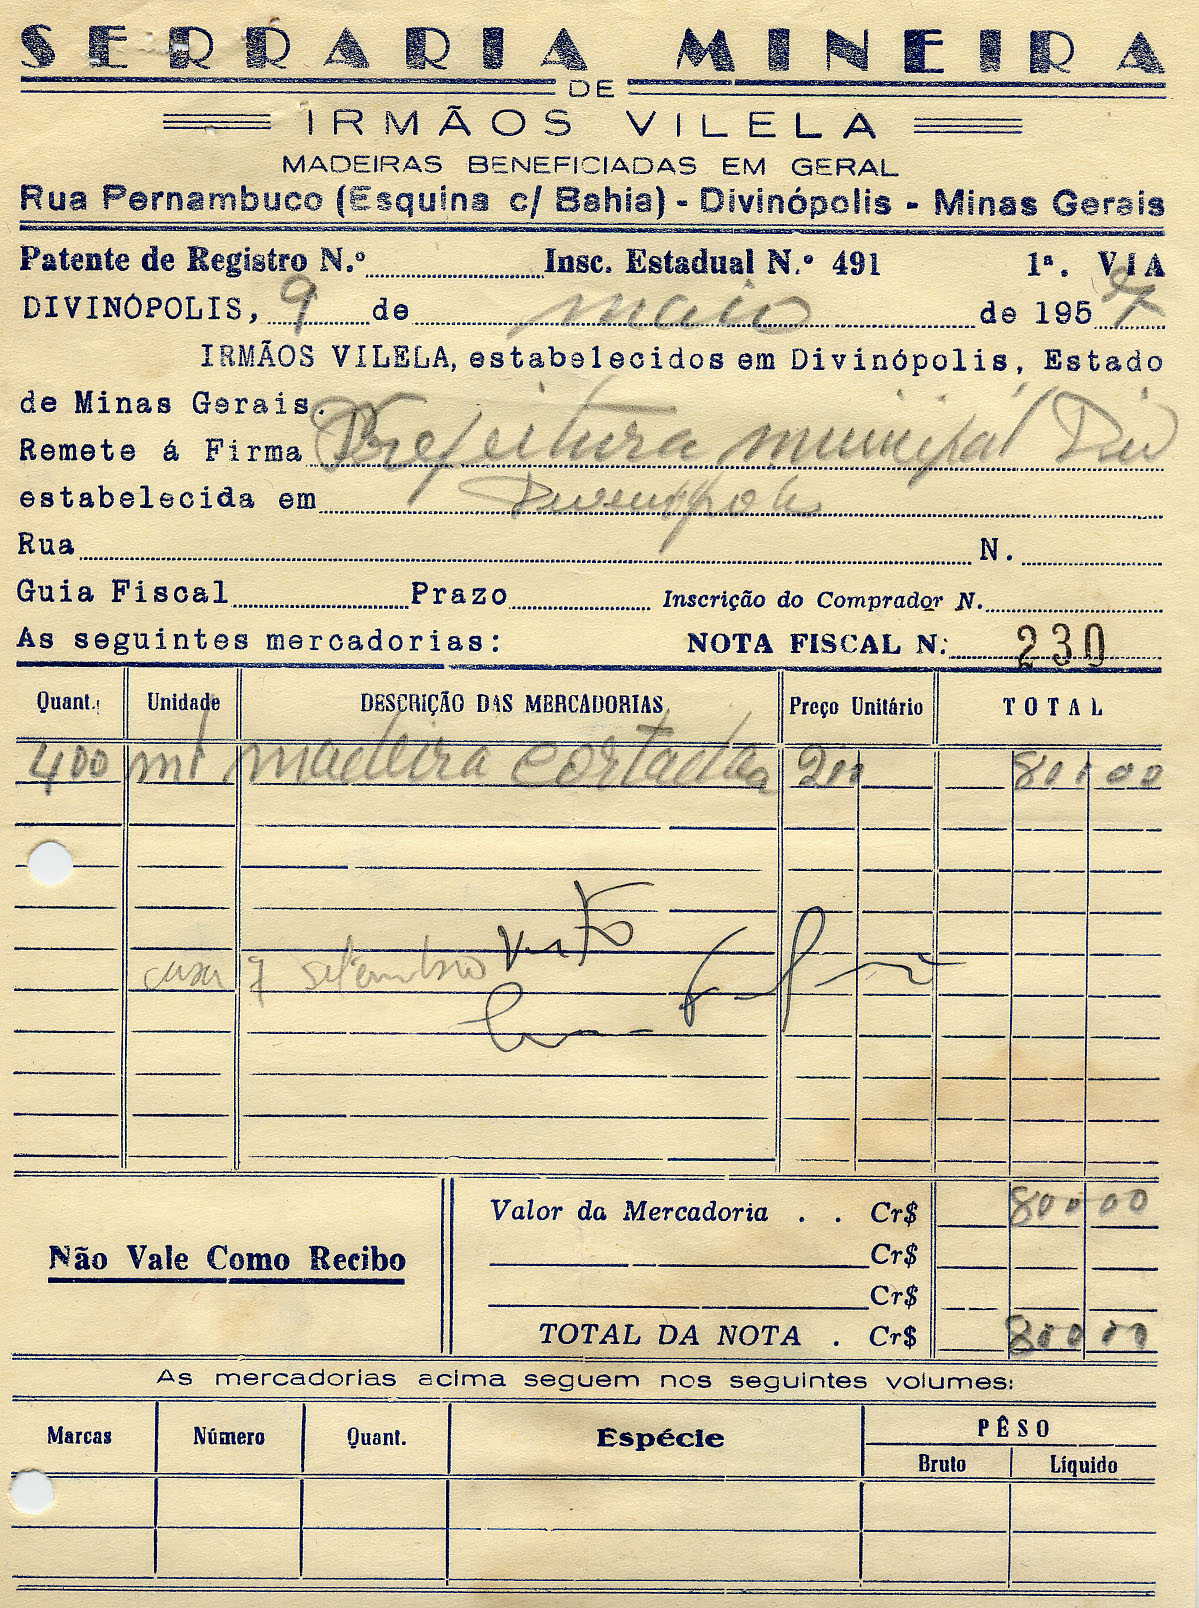 SERRARIA MINEIRA
DE
IRMÃOS VILELA
MADEIRAS BENEFICIADAS EM GERAL
Rua Pernambuco (Esquina c/ Bahia) - Divinópolis - Minas Gerais
Patente de Registro N.º Insc. Estadual N.º 491 1ª. VIA
DIVINÓPOLIS, 9 de maio de 195
IRMÃOS VILELA, estabelecidos em Divinópolis, Estado
de Minas Gerais.
Remete á Firma Prefeitura municipal Div
estabelecida em
Rua N.
Guia Fiscal Prazo Inscrição do Comprador N.
As seguintes mercadorias: NOTA FISCAL N: 230
Quant. Unidade DESCRIÇÃO DAS MERCADORIAS Preço Unitário TOTAL
400 mt madeira cortada 200 800 00
Visto
casa 7 setembro
Valor da Mercadoria . . Cr$ 800 00
Não Vale Como Recibo Cr$
Cr$
TOTAL DA NOTA . Cr$ 800 00
As mercadorias acima seguem nos seguintes volumes:
Marcas Número Quant. Espécie PÊSO
Bruto Líquido